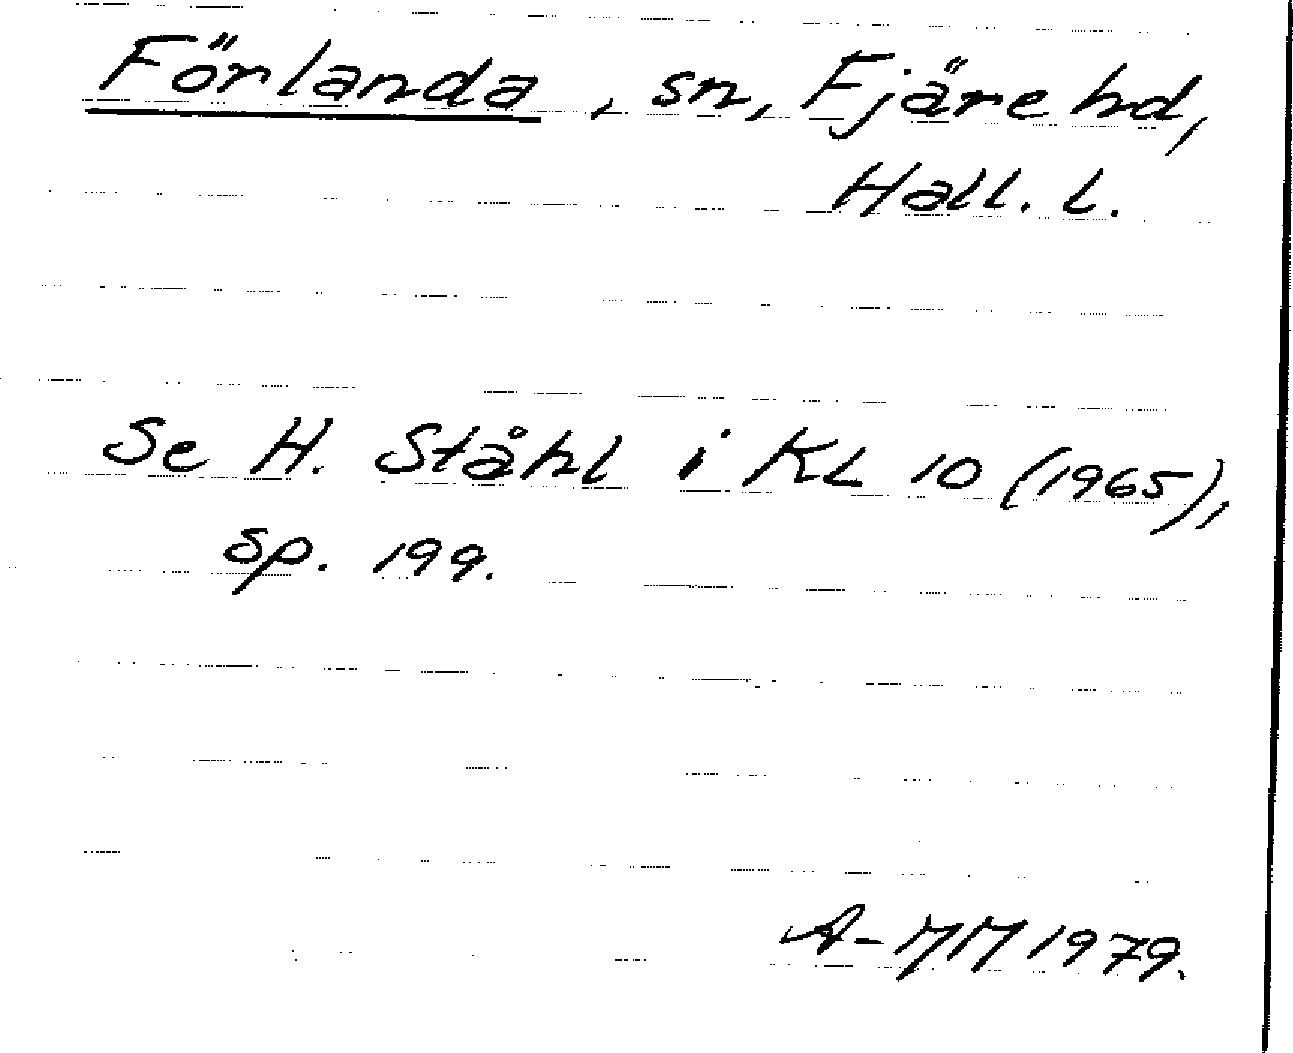 Förlanda, sn, Fjäre hd,
Hall. l.
Se H. Ståhl i KL 10 (1965),
sp. 199.
A-MM 1979.